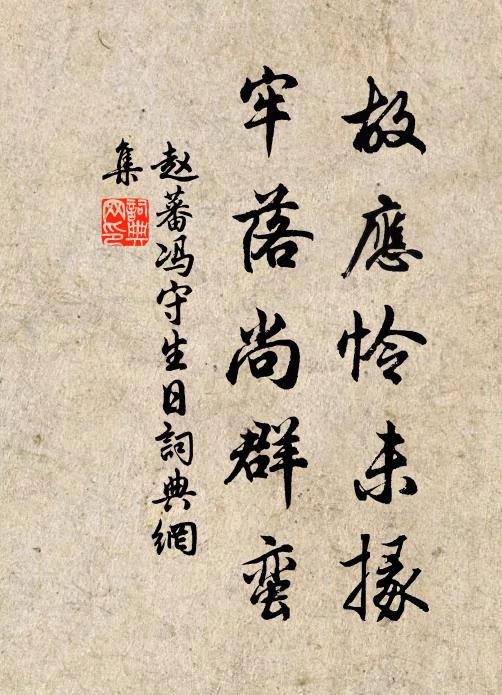 故應怜未掾
牢落尚群蛮
赵蕃冯守生日詞典網
集
詞典網印